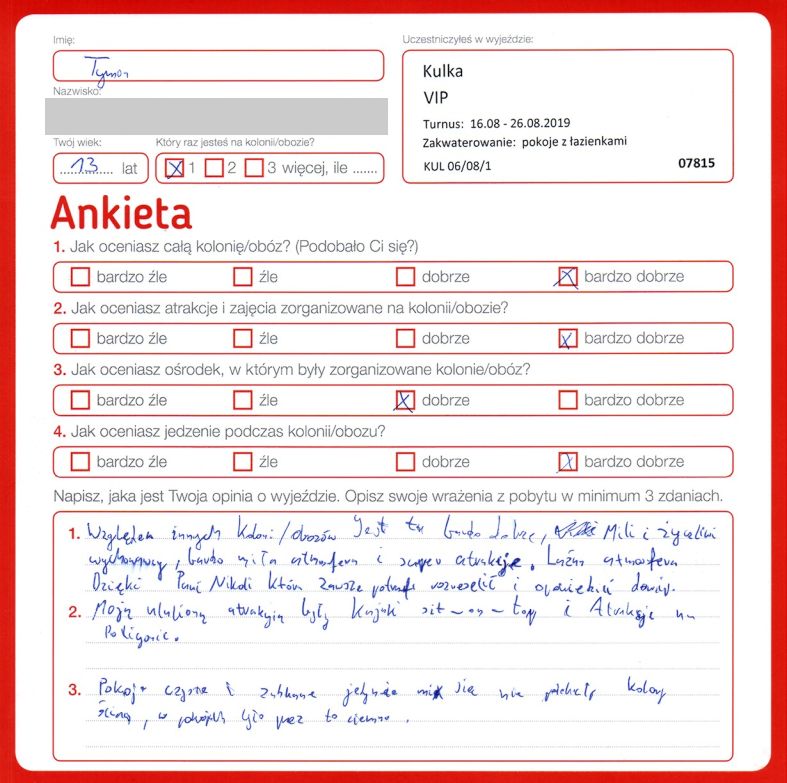 Imię:
Tymon
Nazwisko:
Twój wiek:
13 lat
Który raz jesteś na kolonii/obozie?
1 2 3 więcej, ile .......
Uczestniczyłeś w wyjeździe:
Kulka
VIP
Turnus: 16.08 - 26.08.2019
Zakwaterowanie: pokoje z łazienkami
KUL 06/08/1 07815
Ankieta
1. Jak oceniasz całą kolonię/obóz? (Podobało Ci się?)
bardzo źle źle dobrze bardzo dobrze
2. Jak oceniasz atrakcje i zajęcia zorganizowane na kolonii/obozie?
bardzo źle źle dobrze bardzo dobrze
3. Jak oceniasz ośrodek, w którym były zorganizowane kolonie/obóz?
bardzo źle źle dobrze bardzo dobrze
4. Jak oceniasz jedzenie podczas kolonii/obozu?
bardzo źle źle dobrze bardzo dobrze
Napisz, jaka jest Twoja opinia o wyjeździe. Opisz swoje wrażenia z pobytu w minimum 3 zdaniach.
1. Względem innych Koloni/obozów Jest tu bardo dobrze, Mili i życzliwi
wychowawcy, bardo miła atmosfera i super atrakcje. Luźna atmosfera
Dzięki Pani Nikoli Która zawsze potrafi rozweselić i
2. Moją ulubioną atrakcją były Kajaki sit-on-top i Atrakcje na
Poligonie.
3. Pokoje czyste i zadbane jedynie mi się nie kolory
ścian, w pokojach było przez to ciemno.